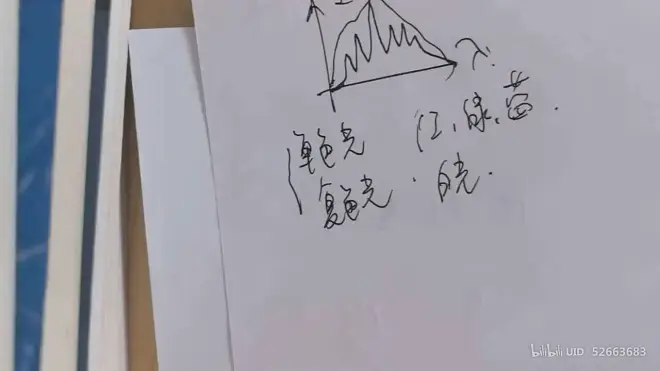 λ.
单色光 红,绿,蓝.
复色光. 白光.
bilibili UID 52663683